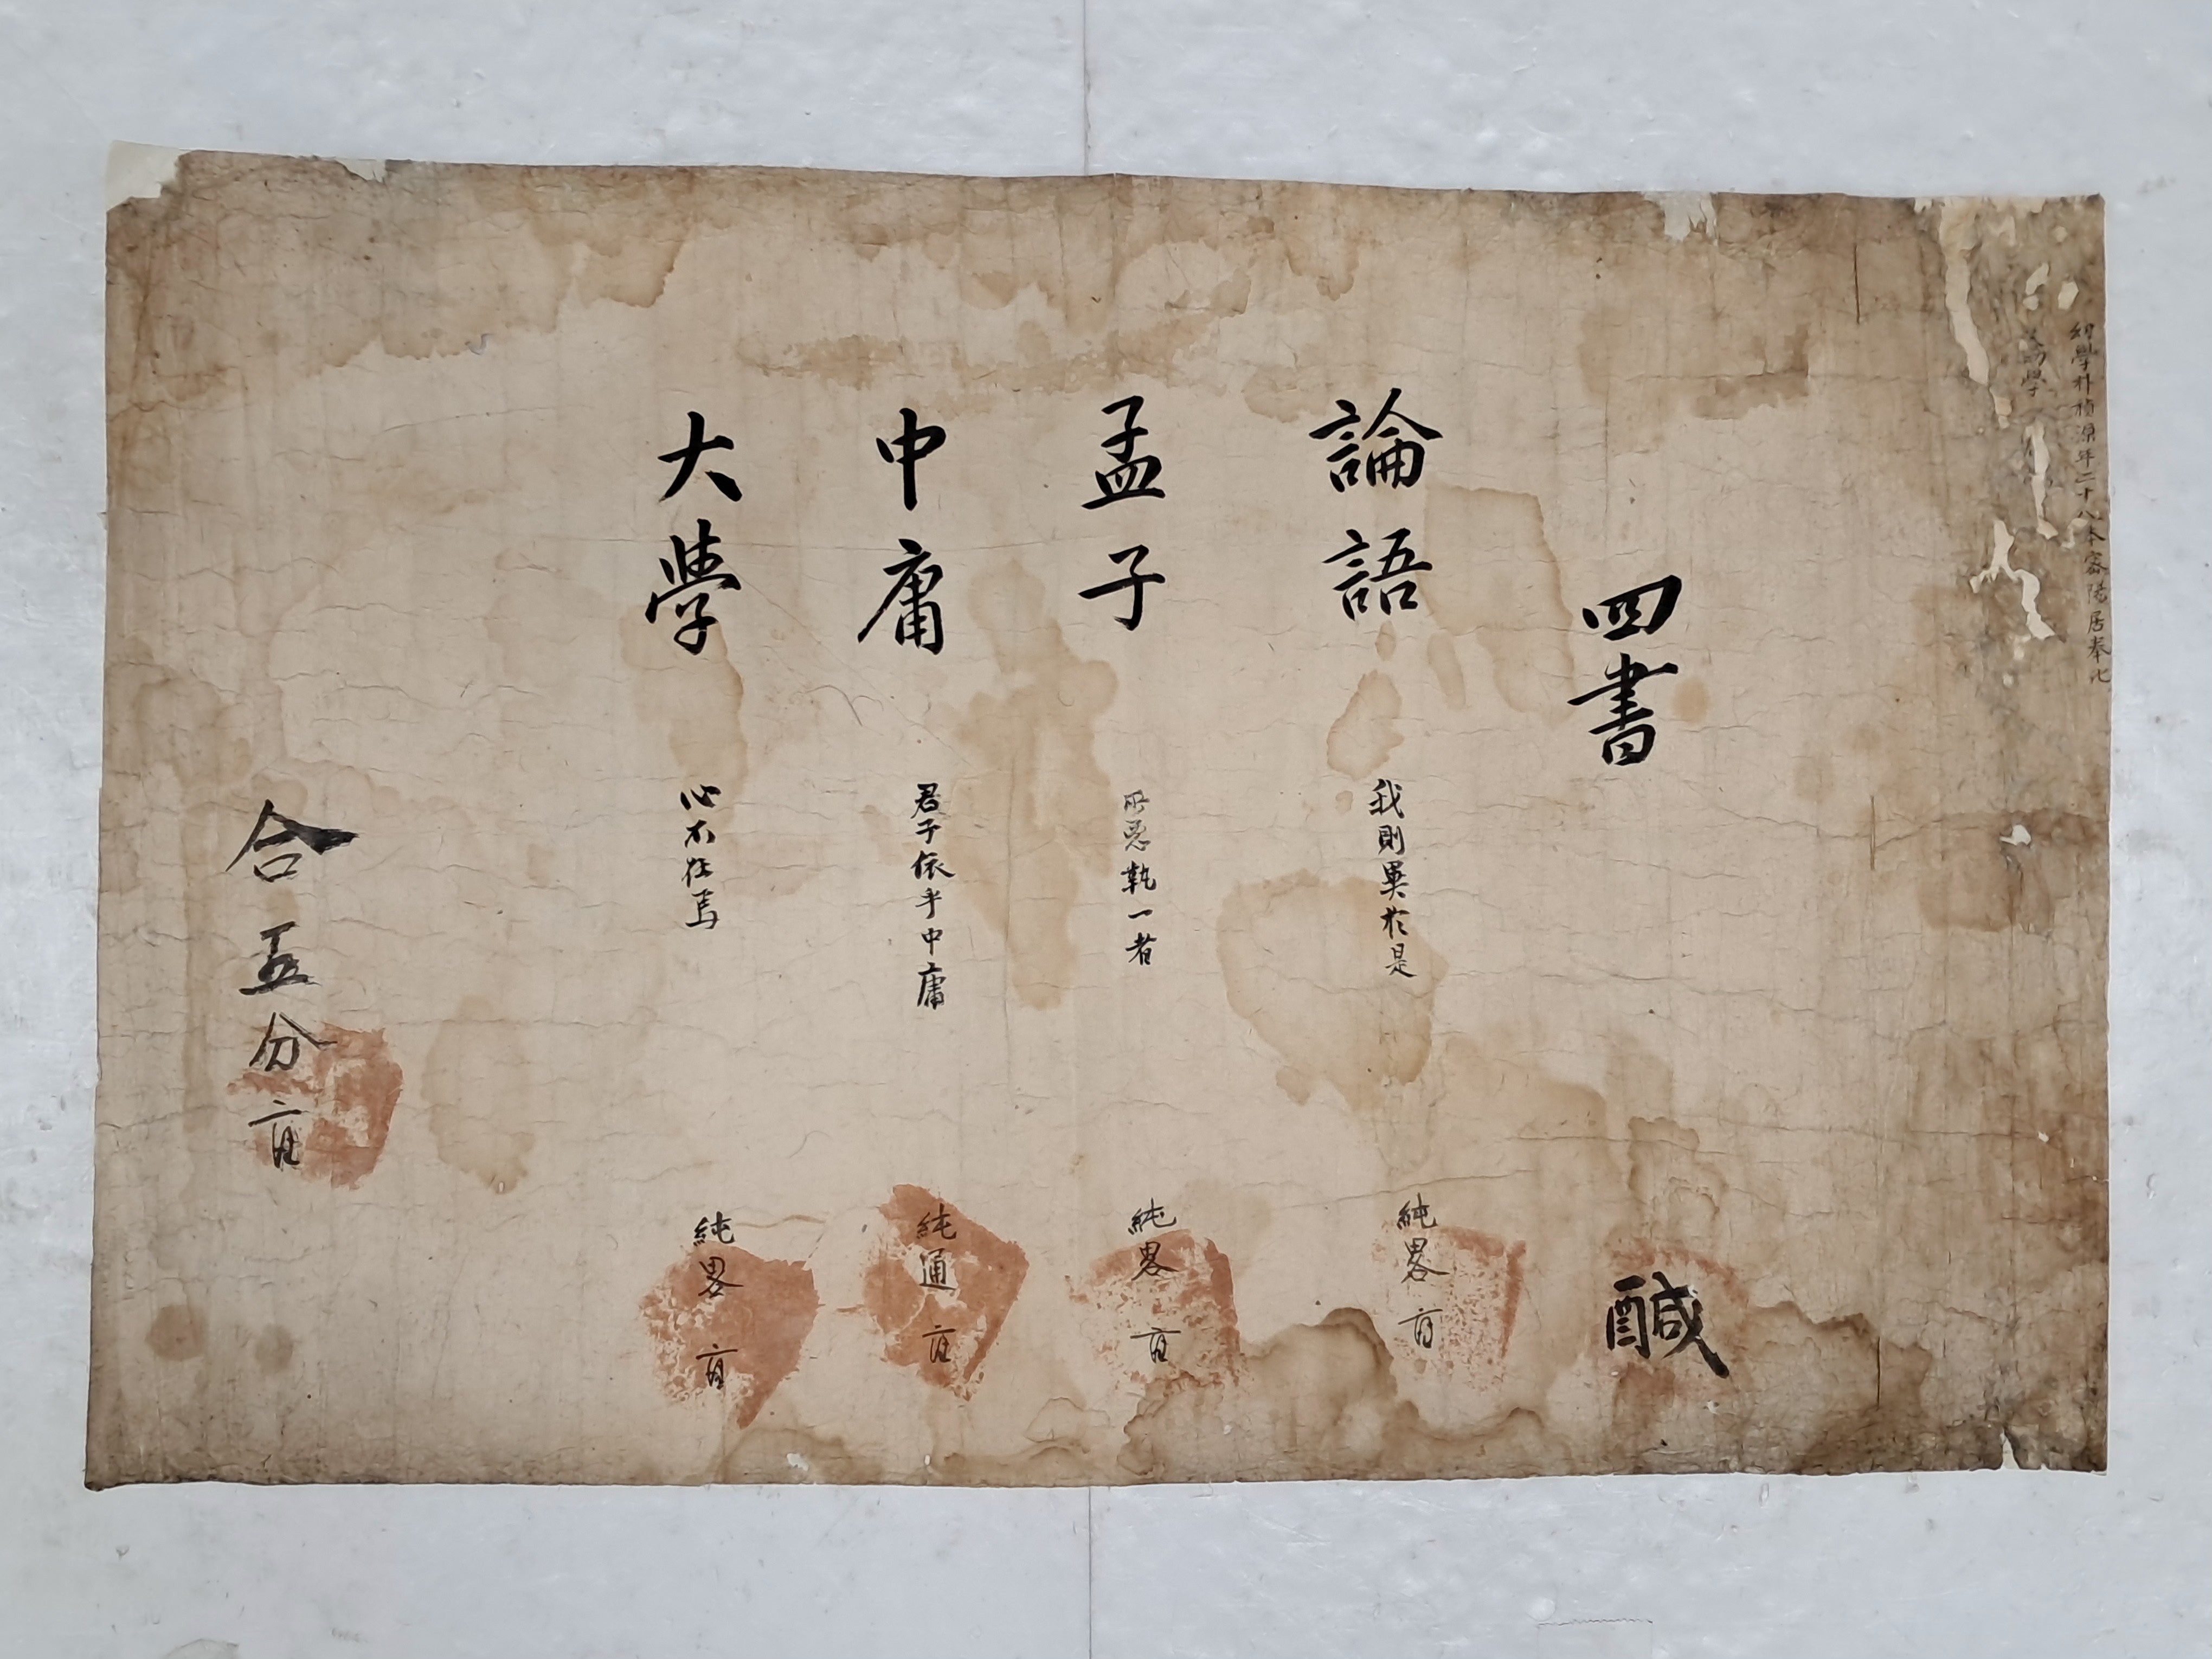 幼學朴楨源年二十八本密陽居奉化
學
四書
鹹
論語 我則異於是 純畧
孟子 所惡執一者 純畧
中庸 君子依乎中庸 純通
大學 心不在焉 純畧
合五分